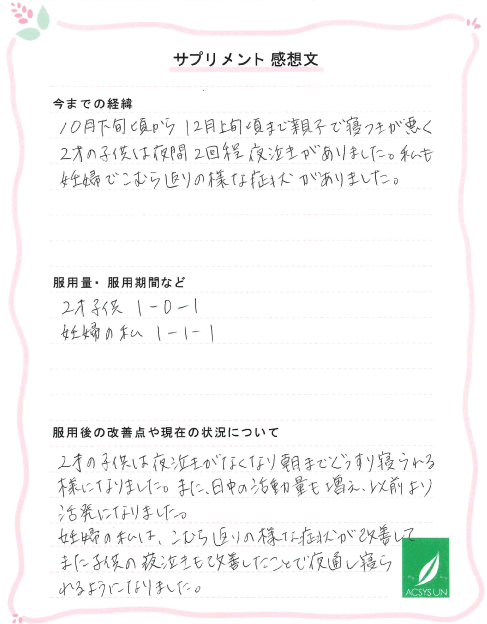 サプリメント 感想文
今までの経緯
10月下旬頃から 12月上旬頃まで親子で寝つきが悪く
2才の子供は夜間 2回程 夜泣きがありました。私も
妊婦でこむら返りの様な症状がありました。
服用量・服用期間など
2才子供 1-0-1
妊婦の私 1-1-1
服用後の改善点や現在の状況について
2才の子供は夜泣きがなくなり朝までぐっすり寝られる
様になりました。また、日中の活動量も増え、以前より
活発になりました。
妊婦の私は、こむら返りの様な症状が改善して
また子供の夜泣きも改善したことで夜通し寝ら
れるようになりました。
ACSYSUN